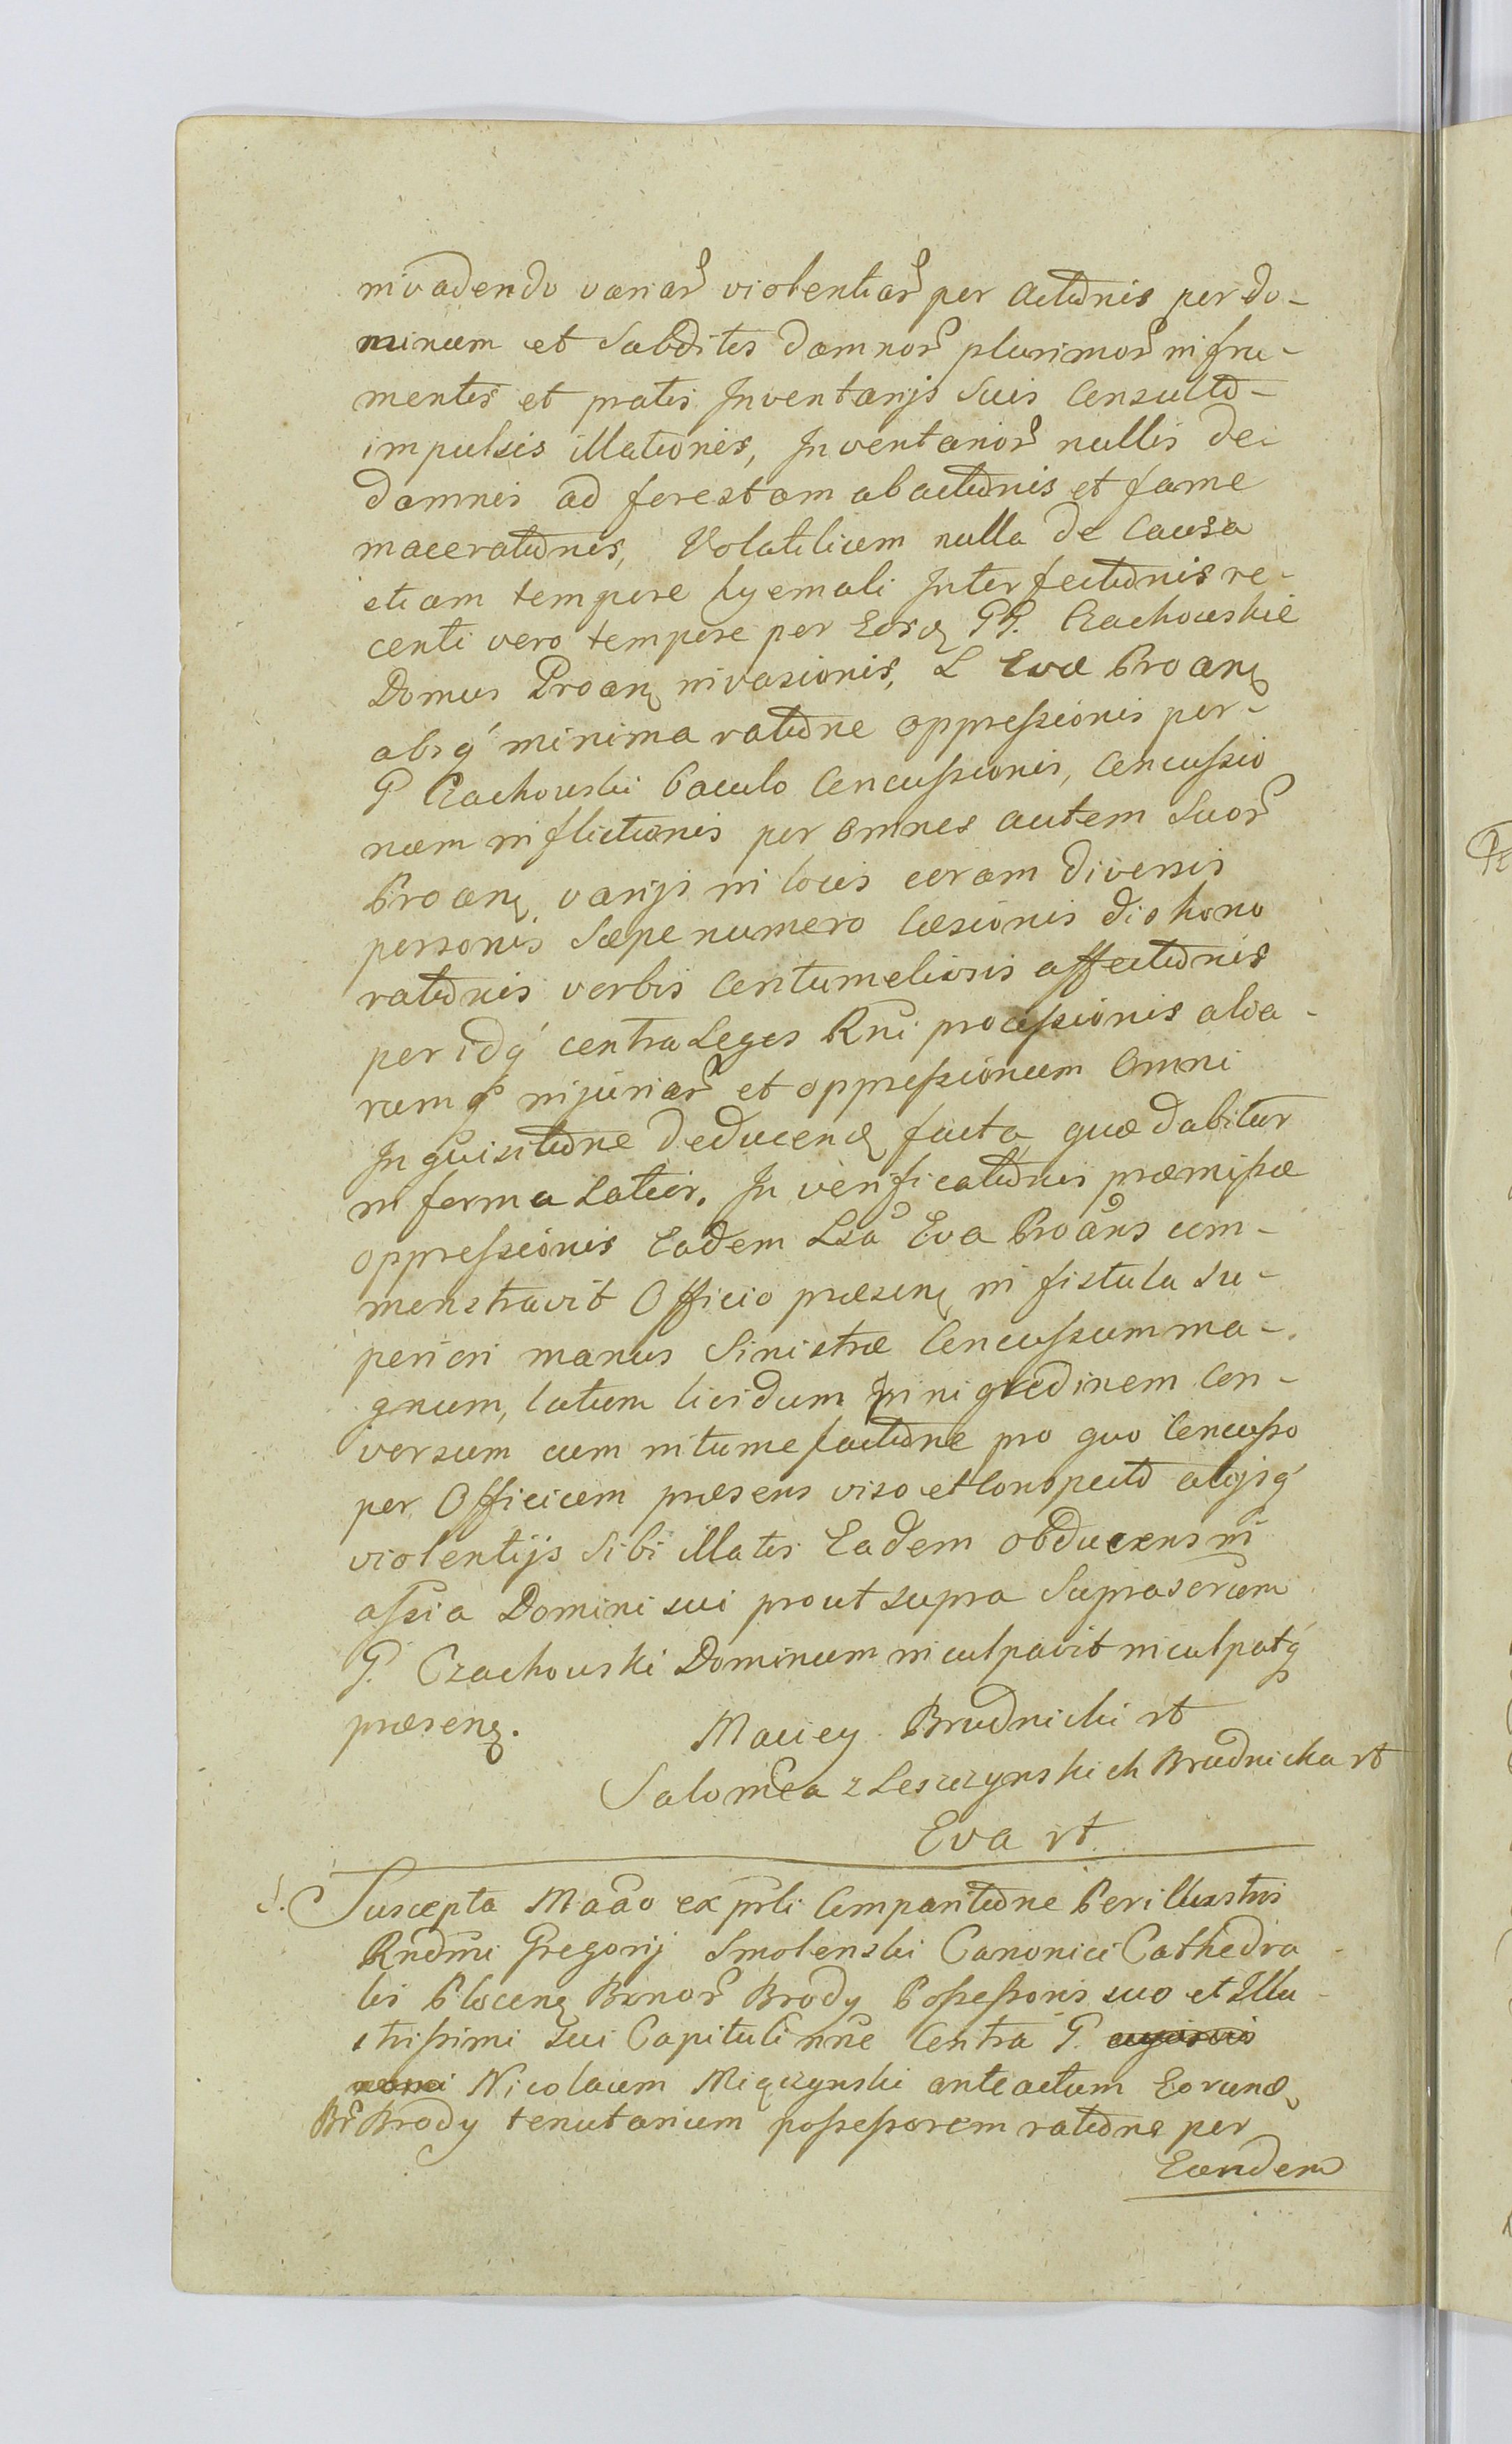 invadendo variar violentiar per actionis per do-
minum et Subditos damnor plurimor in fru-
mentis et pratis Inventarijs suis Consulto-
impulsis illationis, Inventarior nullis de
damnis ad forestam abactionis et fame
macerationis, Volatilium nulla de Causa
etiam tempore hyemali Interfectionis re-
centi vero tempore per Eosd GG. Czachowskie
Domus Proan invasionis, L Evæ Proan
absq minima ratione oppressionis per-
G Czachowski baculo Concussionis, Concussio
num inflictionis per omnes autem Suor
Proan varijs in locis coram diversis
personis Sæpenumero læsionis dishono
rationis verbis Contumeliosis affectionis
per idq contra Leges Rni processionis alia-
rumq injuriar et oppressionum Omni
Inquisitione deducend facta, quæ dabitur
in forma Latior. In verificationis præmissæ
oppressionis Eadem Lsa Eva Proans com-
monstravit Officio præsen in fistula su-
periori manus Sinistræ Concussum ma-
gnum, latum lividum in nigredinem Con-
versum cum intumefactione pro quo Concusso
per Officium præsens viso et Conspecto alijsq
violentijs Sibi illatis Eadem obducens in
assia Domini sui prout supra Suprascrium
G. Czachowski Dominum inculpavit inculpatq
præsen.
Maciey Brudnicki rt
Salomea z Leszczynskich Brudnicka rt
Eva rt.
Suscepta Maao ex prli Comparitione Perillustris
Rndmi Gregorij Smolenski Canonici Cathedra
lis Plocen Bonor Brody Possessoris suo et Illu-
strissimi Sui Capituli nne Contra G.
Nicolaum Miączynski anteactum Eorund
Br Brody tenutarium possessorem ratione per
Eundem